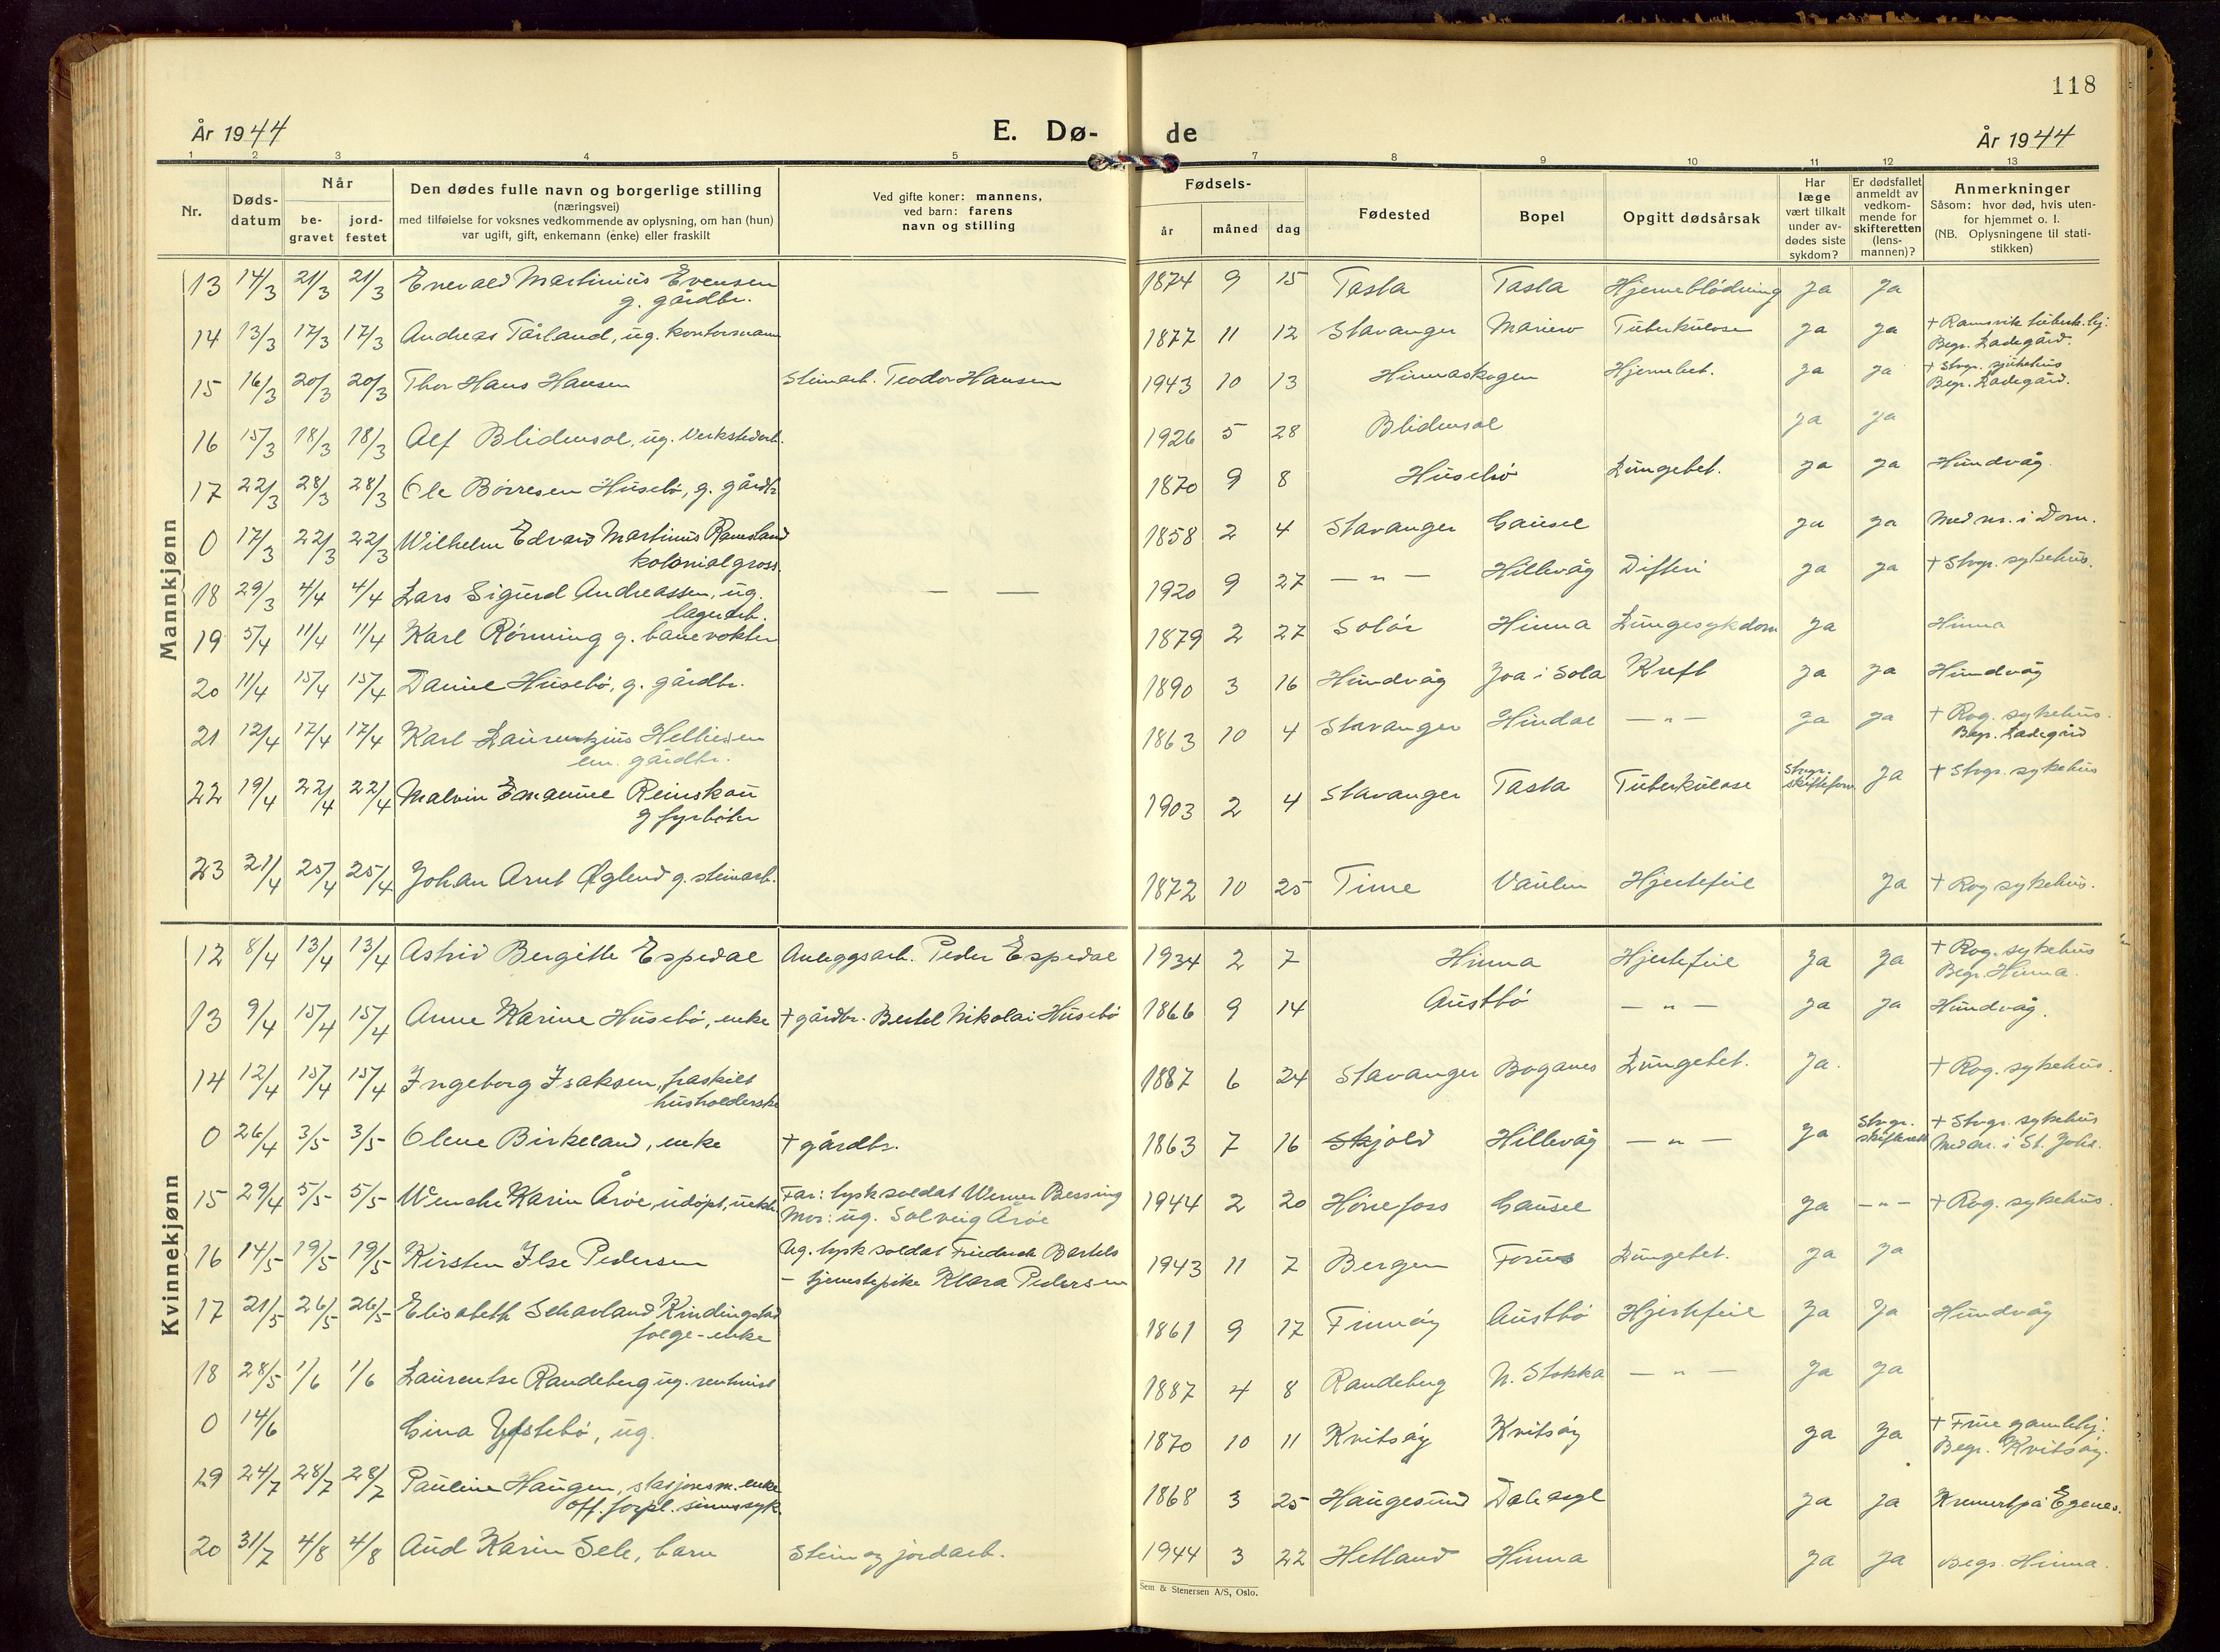 118
År 1944 E. Dø- de År 1944
1 2 3 4 5 7 8 9 10 11 12 13
Nr.
Døds-
datum
Når
be-
gravet
jord-
festet
Den dødes fulle navn og borgerlige stilling
(næringsvei)
med tilføielse for voksnes vedkommende av oplysning, om han (hun)
var ugift, gift, enkemann (enke) eller fraskilt
Ved gifte koner: mannens,
ved barn: farens
navn og stilling
Fødsels-
år måned dag
Fødested
Bopel
Opgitt dødsårsak
Har
læge
vært tilkalt
under av-
dødes siste
sykdom?
Er dødsfallet
anmeldt av
vedkom-
mende for
skifteretten
(lens-
mannen)?
Anmerkninger
Såsom: hvor død, hvis uten-
for hjemmet o. l.
(NB. Oplysningene til stati-
stikken)
Mannkjønn
13 14/3 21/3 21/3 Enevald Martinius Evensen 1874 9 15 Tasta Tasta Hjerneblödning ja ja
g. gårdbr.
14 13/3 17/3 17/3 Andreas Tårland, ug. kontormann 1877 11 12 Stavanger Mariero Tuberkulose ja ja + Ramsvik tuberk.hj.
Begr. Ladegård.
15 16/3 20/3 20/3 Thor Hans Hansen Steinarb. Teodor Hansen 1943 10 13 Hinnaskogen Hjernebet. ja ja + Stvgr. sjukehus
Begr. Ladegård.
16 15/3 18/3 18/3 Alf Blidensol, ug. Verkstedarb. 1926 5 28 Blidensol ja ja
17 22/3 28/3 28/3 Ole Börresen Husebö, g. gårdbr 1870 9 8 Husebö Lungebet. ja ja Hundvåg
0 17/3 22/3 22/3 Wilhelm Edvard Martinus Ramsland 1858 2 4 Stavanger Gausel ja ja Med nr. i Dom.
kolonialgross.
18 29/3 4/4 4/4 Lars Sigurd Andreassen, ug. — — 1920 9 27 — " — Hillevåg Difteri ja ja + Stvgr. sykehus.
lagerarb.
19 5/4 11/4 11/4 Karl Rönning g. banevokter 1879 2 27 Solör Hinna Lungesykdom ja Hinna
20 11/4 15/4 15/4 Daniel Husebö, g. gårdbr. 1890 3 16 Hundvåg Joa i Sola Kreft ja ja Hundvåg
21 12/4 17/4 17/4 Karl Laurentzius Helliesen 1863 10 4 Stavanger Hindal — " — ja ja + Rog. sykehus.
em. gårdbr. Begr. Ladegård
22 19/4 22/4 22/4 Malvin Emanuel Reinskau 1903 2 4 Stavanger Tasta Tuberkulose Stvgr. ja + Stvgr. sykehus
g fyrböter skifteforv.
23 21/4 25/4 25/4 Johan Arnt Øglend g. steinarb. 1872 10 25 Time Vaulen Hjertefeil Ja + Rog sykehus.
Kvinnekjønn
12 8/4 13/4 13/4 Astrid Bergitte Espedal Anleggsarb. Peder Espedal 1934 2 7 Hinna Hjertefeil Ja Ja + Rog. sykehus
Begr. Hinna.
13 9/4 15/4 15/4 Anne Karine Husebö, enke + gårdbr. Bertel Nikolai Husebö 1866 9 14 Austbö — " — ja ja Hundvåg.
14 12/4 15/4 15/4 Ingeborg Isaksen, fraskilt 1887 6 24 Stavanger Boganes Lungebet. Ja. + Rog. sykehus.
husholderske
0 26/4 3/5 3/5 Olene Birkeland, enke + gårdbr. 1863 7 16 Skjold Hillevåg — " — Ja Stvgr. + Stvgr. sykehus
skifterett Med nr. i St. Joh.
15 29/4 5/5 5/5 Wenche Karin Åröe, udöpt, uekte Far: tysk soldat Werner Bessing 1944 2 20 Hönefoss Gausel ja — " — + Rog. sykehus.
Mor: ug. Solveig Åröe
16 14/5 19/5 19/5 Kirsten Ilse Pedersen Ug. tysk soldat Friedrich Bartels 1943 11 7 Bergen Forus Lungebet. ja ja
— tjenestepike Klara Pedersen
17 21/5 26/5 26/5 Elisabeth Sekarland Kindingstad 1861 9 17 Finnöy Austbö Hjertefeil Ja Ja Hundvåg
folge-enke
18 28/5 1/6 1/6 Laurentse Randeberg ug. rentenist 1887 4 8 Randeberg N. Stokka — " — Ja Ja
0 14/6 Gina Ystebö, ug. 1870 10 11 Kvitsöy Kvitsöy ja Ja + Frue gamlehj.
Begr. Kvitsöy.
19 24/7 28/7 28/7 Pauline Haugen, stasjonsm. enke 1868 3 25 Haugesund Dale asyl ja ja Kremert på Egenes.
off. forpl. sinnssyk.
20 31/7 4/8 4/8 Aud Karin Sele, barn Stein og jordarb. 1944 3 22 Hetland Hinna ja ja Begr. Hinna.
Sem & Stenersen A/S, Oslo.